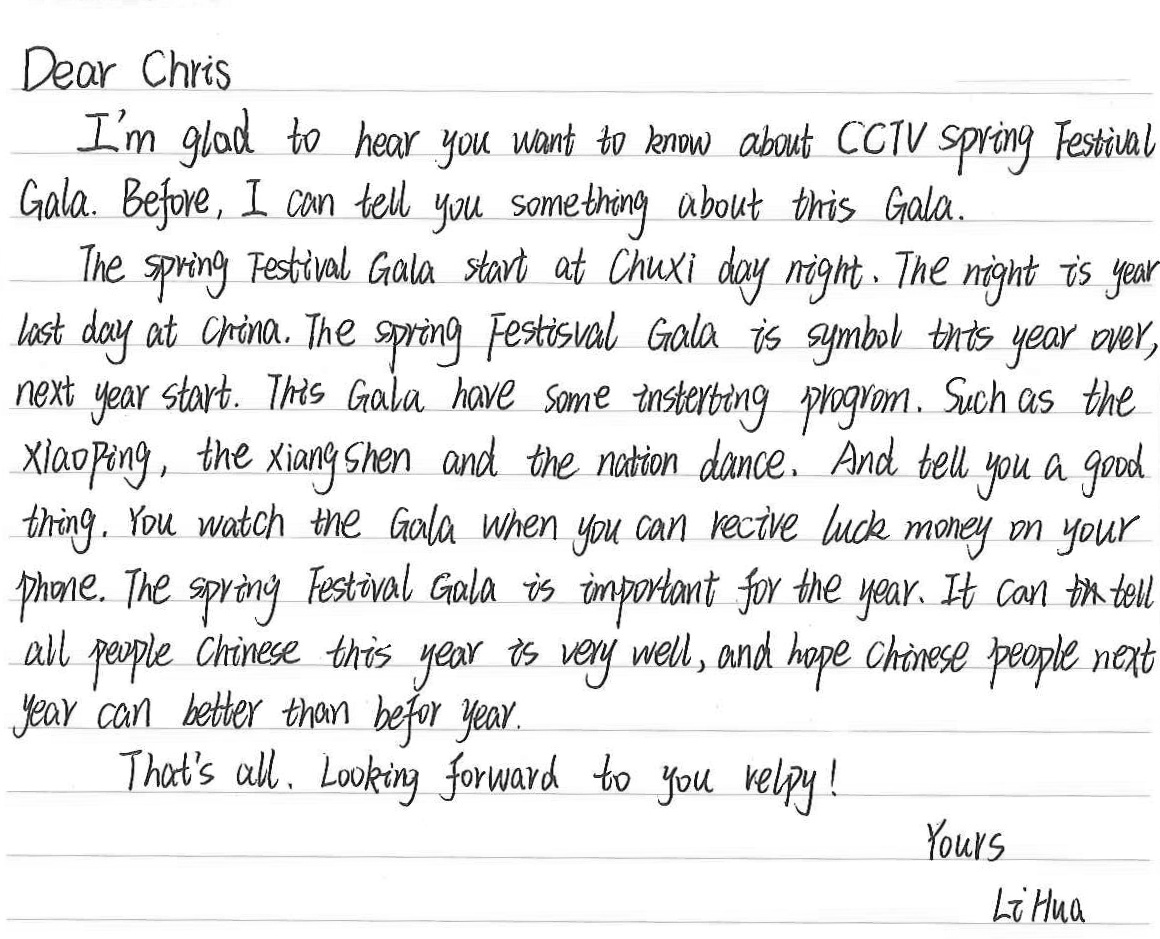 Dear Chris
I'm glad to hear you want to know about CCTV spring Festival
Gala. Before, I can tell you something about this Gala.
The spring Festival Gala start at Chuxi day night. The night is year
last day at China. The spring Festisval Gala is symbol this year over,
next year start. This Gala have some insterting program. Such as the
xiaoping, the xiangshen and the nation dance. And tell you a good
thing. You watch the Gala when you can recive luck money on your
phone. The spring Festival Gala is important for the year. It can tell
all people Chinese this year is very well, and hope Chinese people next
year can better than befor year.
That's all. Looking forward to you relpy!
Yours
Li Hua